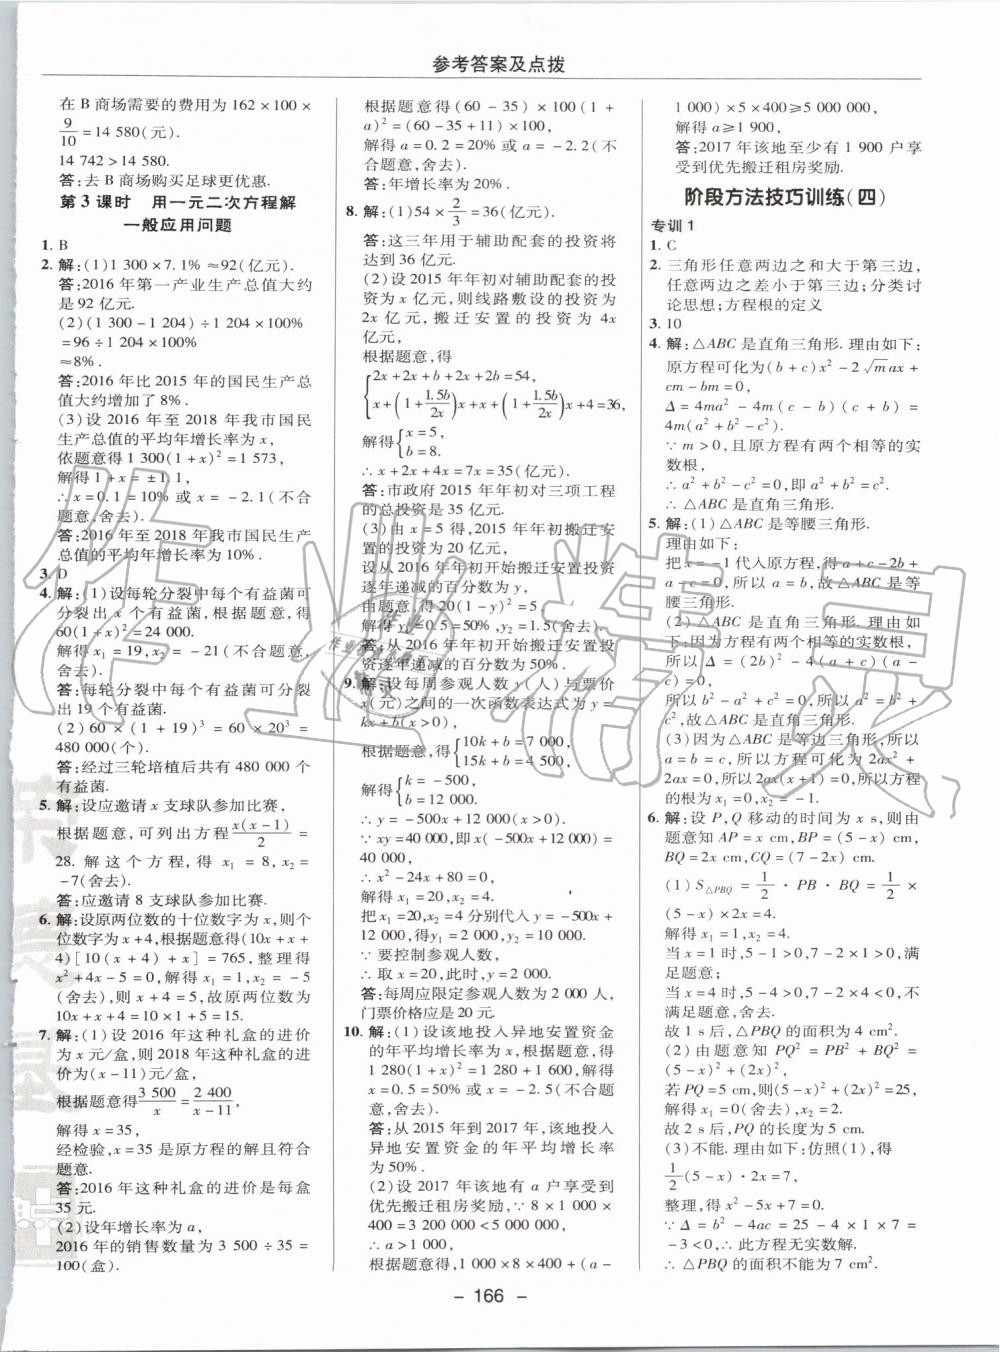 参考答案及点拨
在 B 商场需要的费用为 162×100×
9/10=14 580(元).
14 742>14 580.
答:去 B 商场购买足球更优惠.
第 3 课时 用一元二次方程解
一般应用问题
1. B
2. 解:(1)1 300×7.1%≈92(亿元).
答:2016 年第一产业生产总值大约
是 92 亿元.
(2)(1 300-1 204)÷1 204×100%
=96÷1 204×100%
≈8%.
答:2016 年比 2015 年的国民生产总
值大约增加了 8%.
(3)设 2016 年至 2018 年我市国民
生产总值的平均年增长率为 x,
依题意得 1 300(1+x)²=1 573,
解得 1+x=±1.1,
∴x=0.1=10% 或 x=-2.1(不合
题意,舍去).
答:2016 年至 2018 年我市国民生产
总值的平均年增长率为 10%.
3. D
4. 解:(1)设每轮分裂中每个有益菌可
分裂出 x 个有益菌,根据题意,得
60(1+x)²=24 000.
解得 x₁=19,x₂=-21(不合题意,
舍去).
答:每轮分裂中每个有益菌可分裂
出 19 个有益菌.
(2)60×(1+19)³=60×20³=
480 000(个).
答:经过三轮培植后共有 480 000 个
有益菌.
5. 解:设应邀请 x 支球队参加比赛,
根据题意,可列出方程x(x-1)/2=
28. 解这个方程,得 x₁=8,x₂=
-7(舍去).
答:应邀请 8 支球队参加比赛.
6. 解:设原两位数的十位数字为 x,则个
位数字为 x+4,根据题意得(10x+x+
4)[10(x+4)+x]=765,整理得
x²+4x-5=0,解得 x₁=1,x₂=-5
(舍去),则 x+4=5,故原两位数为
10x+x+4=10×1+5=15.
7. 解:(1)设 2016 年这种礼盒的进价
为 x 元/盒,则 2018 年这种礼盒的进
价为(x-11)元/盒,
根据题意得3 500/x=2 400/(x-11),
解得 x=35,
经检验,x=35 是原方程的解且符合
题意.
答:2016 年这种礼盒的进价是每盒
35 元.
(2)设年增长率为 a,
2016 年的销售数量为 3 500÷35=
100(盒).
根据题意得(60-35)×100(1+
a)²=(60-35+11)×100,
解得 a=0.2=20% 或 a=-2.2(不
合题意,舍去).
答:年增长率为 20%.
8. 解:(1)54×2/3=36(亿元).
答:这三年用于辅助配套的投资将
达到 36 亿元.
(2)设 2015 年年初对辅助配套的投
资为 x 亿元,则线路敷设的投资为
2x 亿元,搬迁安置的投资为 4x
亿元,
根据题意,得
{2x+2x+b+2x+2b=54,
x+(1+1.5b/2x)x+x+(1+1.5b/2x)²x+4=36,
解得{x=5,
b=8.
∴x+2x+4x=7x=35(亿元).
答:市政府 2015 年年初对三项工程
的总投资是 35 亿元.
(3)由 x=5 得,2015 年年初搬迁安
置的投资为 20 亿元.
设从 2016 年年初开始搬迁安置投资
逐年递减的百分数为 y,
由题意,得 20(1-y)²=5,
解得 y₁=0.5=50%,y₂=1.5(舍去).
答:从 2016 年年初开始搬迁安置投
资逐年递减的百分数为 50%.
9. 解:设每周参观人数 y(人)与票价
x(元)之间的一次函数表达式为 y=
kx+b(x>0),
根据题意,得{10k+b=7 000,
15k+b=4 500,
解得{k=-500,
b=12 000.
∴y=-500x+12 000(x>0).
∵xy=40 000,即 x(-500x+12 000)=
40 000,
∴x²-24x+80=0,
解得 x₁=20,x₂=4.
把 x₁=20,x₂=4 分别代入 y=-500x+
12 000,得y₁=2 000,y₂=10 000.
∵要控制参观人数,
∴取 x=20,此时,y=2 000.
答:每周应限定参观人数为 2 000 人,
门票价格应是 20 元.
10. 解:(1)设该地投入异地安置资金
的年平均增长率为 x,根据题意,得
1 280(1+x)²=1 280+1 600,解得
x=0.5=50% 或 x=-2.5(不合题
意,舍去).
答:从 2015 年到 2017 年,该地投入
异地安置资金的年平均增长率
为 50%.
(2)设 2017 年该地有 a 户享受到
优先搬迁租房奖励,∵8×1 000×
400=3 200 000<5 000 000,
∴a>1 000.
根据题意得,1 000×8×400+(a-
1 000)×5×400≥5 000 000,
解得 a≥1 900,
答:2017 年该地至少有 1 900 户享
受到优先搬迁租房奖励.
阶段方法技巧训练(四)
专训 1
1. C
2. 三角形任意两边之和大于第三边,
任意两边之差小于第三边;分类讨
论思想;方程根的定义
3. 10
4. 解:△ABC 是直角三角形. 理由如下:
原方程可化为(b+c)x²-2√m ax+
cm-bm=0,
Δ=4ma²-4m(c-b)(c+b)=
4m(a²+b²-c²).
∵m>0,且原方程有两个相等的实
数根,
∴a²+b²-c²=0,即 a²+b²=c².
∴△ABC 是直角三角形.
5. 解:(1)△ABC 是等腰三角形.
理由如下:
把 x=-1 代入原方程,得 a+c-2b+
a-c=0,所以 a=b,故△ABC 是等
腰三角形.
(2)△ABC 是直角三角形,理由如
下:因为方程有两个相等的实数根,
所以 Δ=(2b)²-4(a+c)(a-
c)=0,
所以 b²-a²+c²=0,所以 a²=b²+
c²,故△ABC 是直角三角形.
(3)因为△ABC 是等边三角形,所以
a=b=c,所以方程可化为 2ax²+
2ax=0,所以 2ax(x+1)=0,所以方程
的根为 x₁=0,x₂=-1.
6. 解:设 P,Q 移动的时间为 x s,则由
题意知 AP=x cm,BP=(5-x)cm,
BQ=2x cm,CQ=(7-2x)cm.
(1)S△PBQ=1/2·PB·BQ=1/2×
(5-x)×2x=4.
解得 x₁=1,x₂=4.
当 x=1 时,5-1>0,7-2>0,
满足题意;
当 x=4 时,5-4>0,7-2×4<0,
不满足题意,舍去.
故 1 s 后,△PBQ 的面积为 4 cm².
(2)由题意知 PQ²=PB²+BQ²=
(5-x)²+(2x)²,
若 PQ=5 cm,则(5-x)²+(2x)²=25,
解得 x₁=0(舍去),x₂=2.
故 2 s 后,PQ 的长度为 5 cm.
(3)不能. 理由如下:仿照(1),得
1/2(5-x)·2x=7,
整理,得 x²-5x+7=0.
∵Δ=b²-4ac=25-4×1×7=
-3<0,∴此方程无实数解.
∴△PBQ 的面积不能为 7 cm².
- 166 -
作业精灵